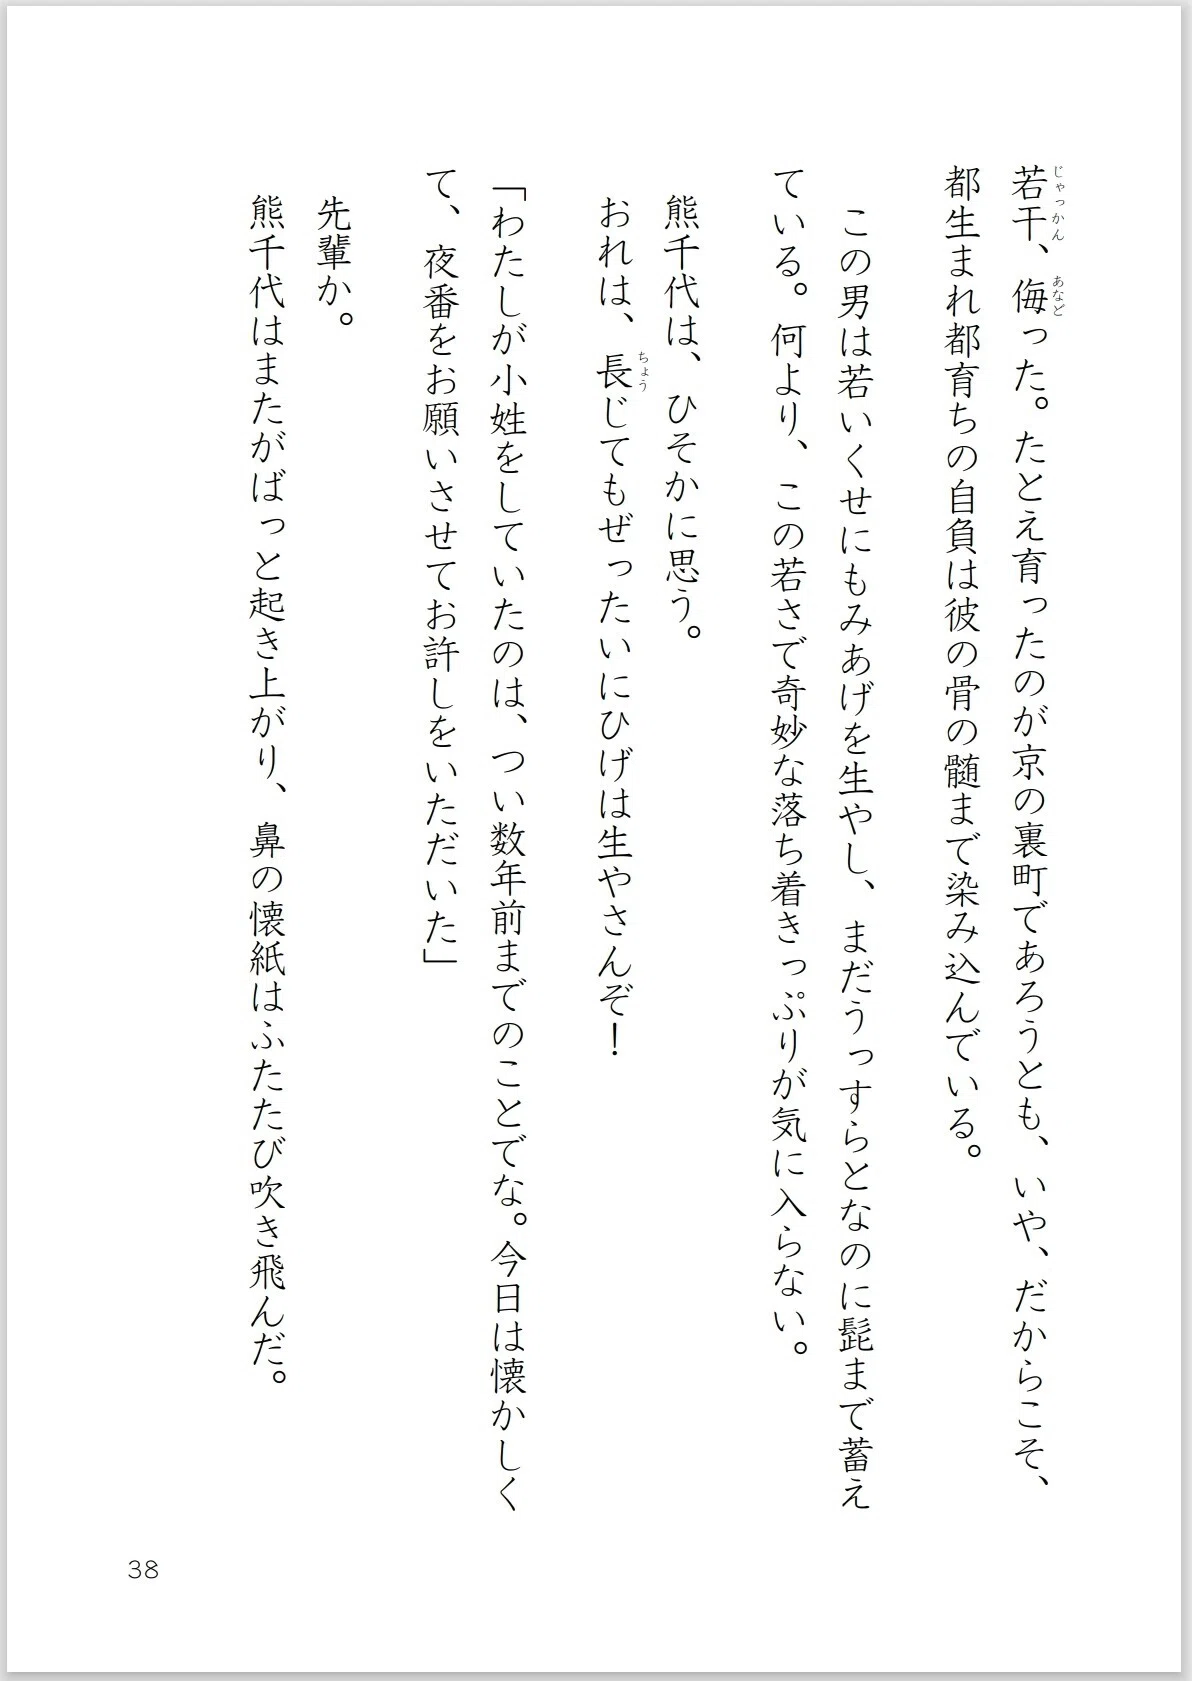 若干、侮った。たとえ育ったのが京の裏町であろうとも、いや、だからこそ、
じゃっかん
あなど
都生まれ都育ちの自負は彼の骨の髄まで染み込んでいる。
この男は若いくせにもみあげを生やし、まだうっすらとなのに髭まで蓄え
ている。何より、この若さで奇妙な落ち着きっぷりが気に入らない。
熊千代は、ひそかに思う。
おれは、長じてもぜったいにひげは生やさんぞ！
ちょう
「わたしが小姓をしていたのは、つい数年前までのことでな。今日は懐かしく
て、夜番をお願いさせてお許しをいただいた」
先輩か。
熊千代はまたがばっと起き上がり、鼻の懐紙はふたたび吹き飛んだ。
38